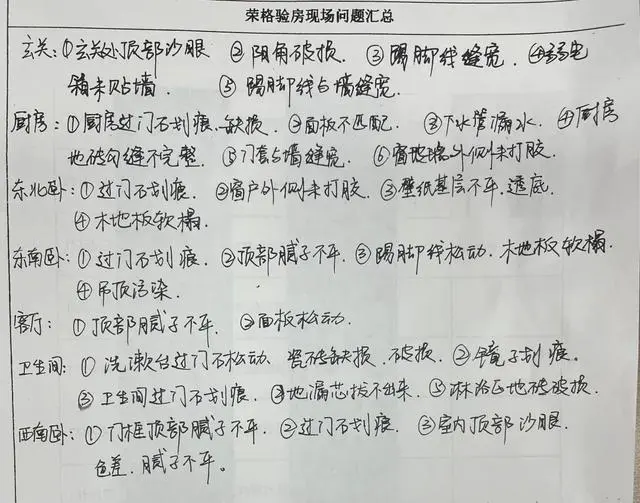 荣格验房现场问题汇总
玄关:①玄关处顶部沙眼 ②阴角破损. ③踢脚线缝宽. ④弱电
箱未贴墙. ⑤踢脚线与墙缝宽.
厨房:①厨房过门石划痕、缺损. ②面板不匹配. ③下水管漏水. ④厨房
地砖勾缝不完整. ⑤门套与墙缝宽. ⑥窗地墙外侧未打胶.
东北卧:①过门石划痕. ②窗户外侧未打胶. ③壁纸基层不平.透底.
④木地板软榻
东南卧:①过门石划痕. ②顶部腻子不平. ③踢脚线松动.木地板软榻.
④吊顶污染.
客厅: ①顶部腻子不平. ②面板松动.
卫生间: ①洗漱台过门石松动、瓷砖缺损.破损. ②镜子划痕.
③卫生间过门石划痕. ④地漏芯拔不出来. ⑤淋浴区地砖破损.
西南卧:①门框顶部腻子不平. ②过门石划痕. ③室内顶部沙眼.
色差.腻子不平。